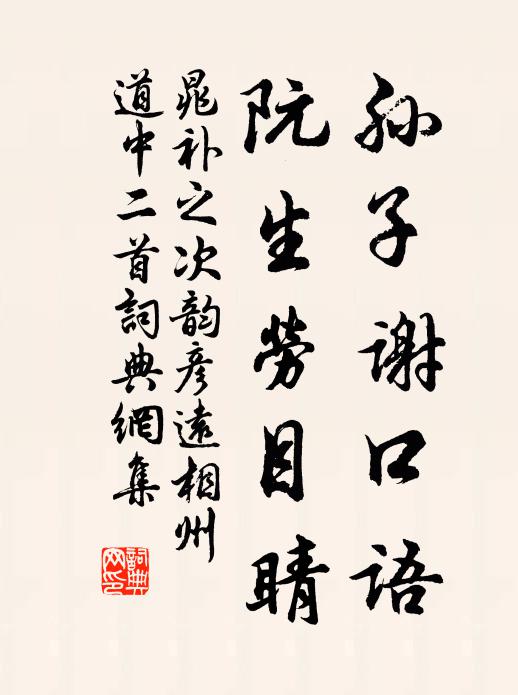 孙子谢口语
阮生劳目睛
晁补之次韵彦远相州
道中二首詞典網集
詞典网印